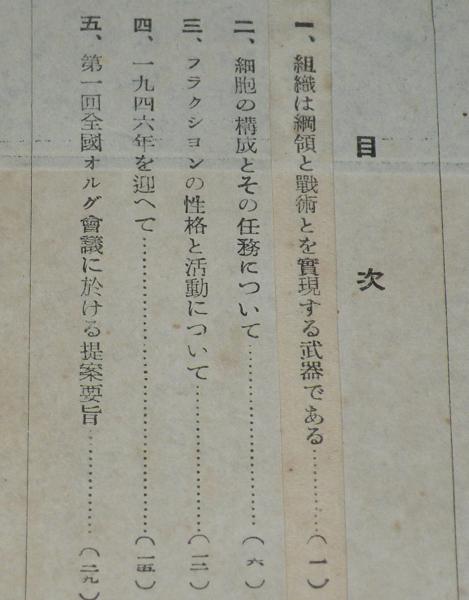 目次
一、組織は綱領と戰術とを實現する武器である…………(一)
二、細胞の構成とその任務について…………………(六)
三、フラクションの性格と活動について………………(一二)
四、一九四六年を迎へて………………………………(一五)
五、第一回全國オルグ會議に於ける提案要旨…………(二九)